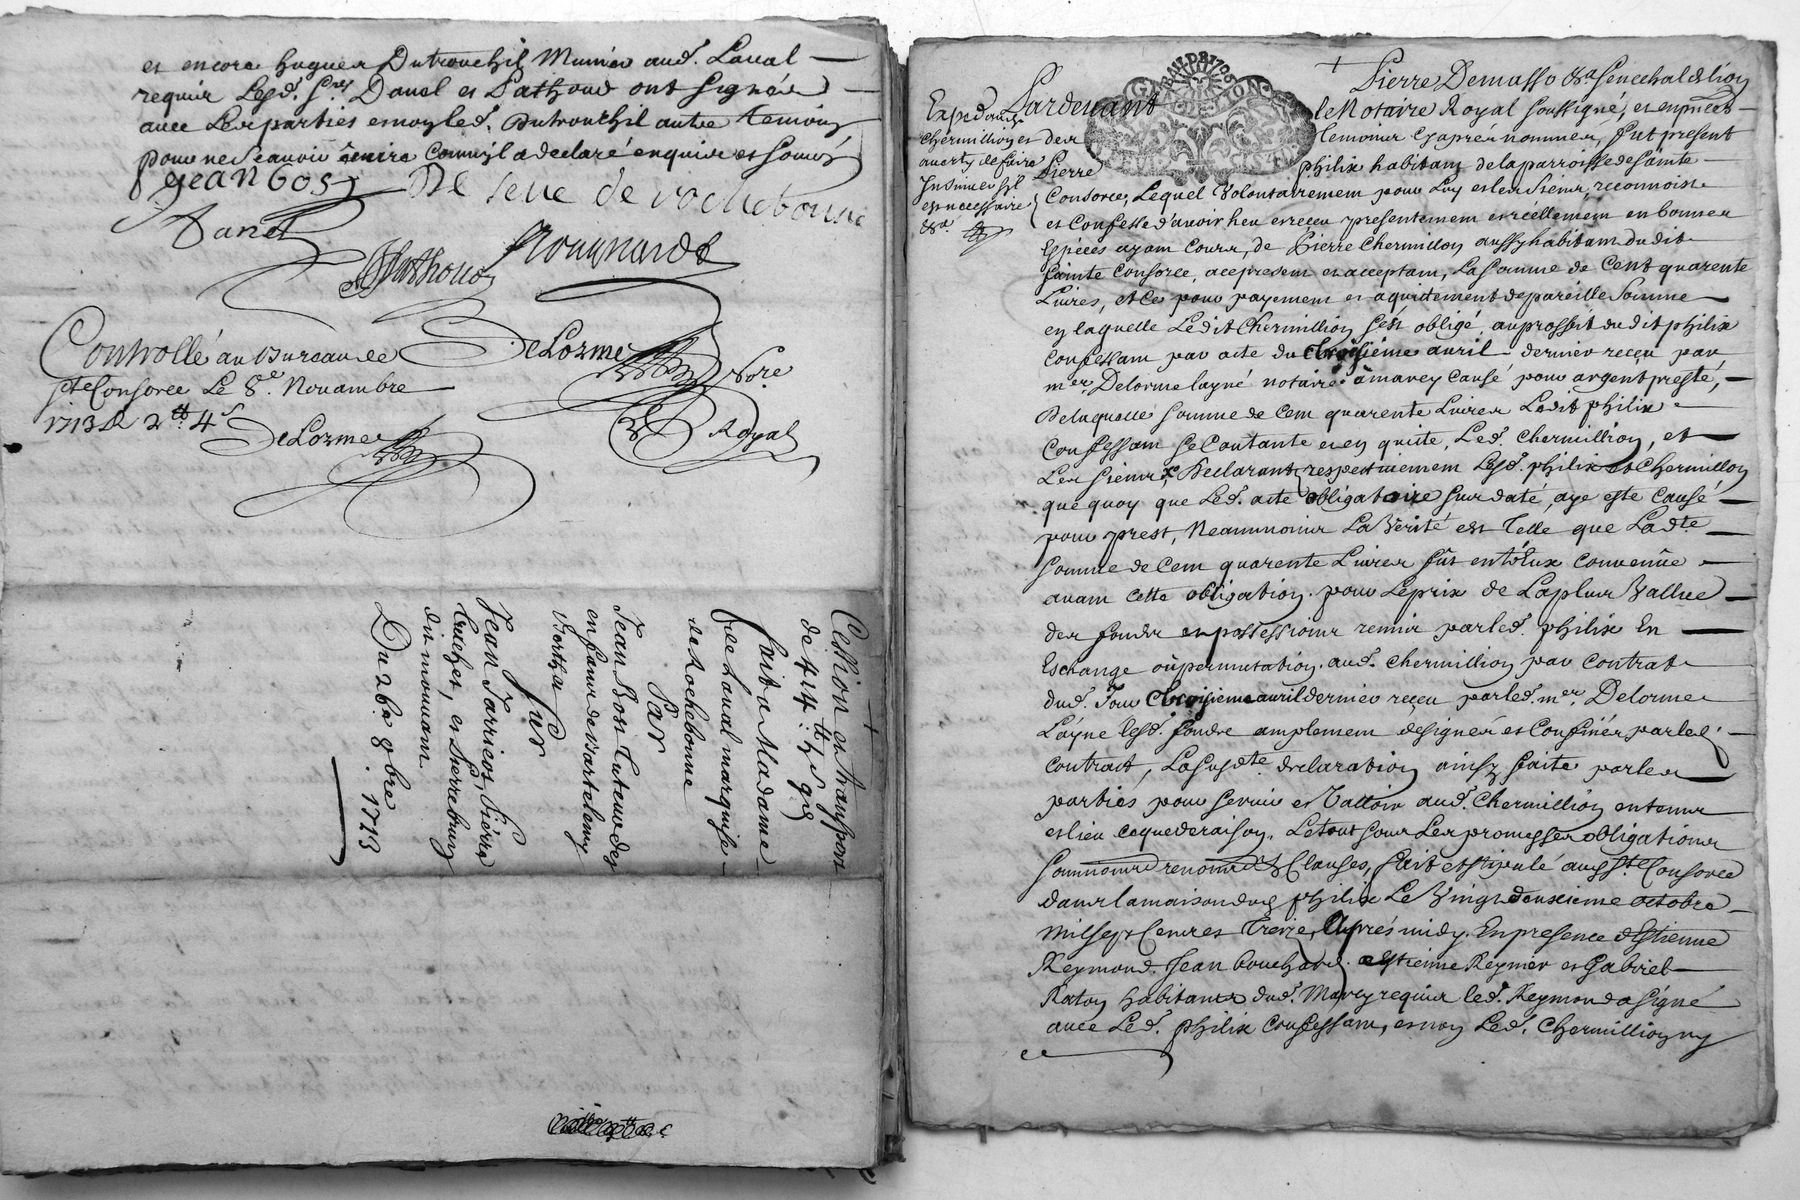 et encore hugues Dutrouchil Munier aud.t Laual
requir Lesd.t s.rs Danel et Pathoud ont signés
auec Les parties et noy led.t Dutrouchil autre temoing
pour ne scauoir écrire comm'il a declaré enquis et sommé
Jean bost De seue de rochebonne
Danel
Pathoud
Controllé au Bureau de
s.te Consorce Le 8.e Nouambre
1713 R 2.tt 4.s
DeLorme
DeLorme no.re
Royal
Cession et transport
de 414.tt 7.s 9.d
fait a Madame
de Laual marquise
de Rochebonne
Par
Jean Bost tuteur des
enfans de Bartelemy
Sur
Jean
du mornant
Du 26.e 8bre 1713
GENERAL DE LION
Pardeuant
le Notaire Royal soussigné, et en presence
témoins cy aprés nommés, fut present
Pierre philix habitant de la parroisse de sainte
Consorce, Lequel Volontairement pour Luy et les siens, reconnoist
et Confesse d'auoir heu et receu presentement et réellement en bonnes
Espéces ayant cours, de Pierre Chermillon, aussy habitant du dit
sainte Consorce, acepresent et acceptant, La somme de Cent quarente
Liures, et ce pour payement et aquitement de pareille somme
en laquelle Ledit Chermillion s'est obligé, au proffit du dit philix
Confessant par acte du troisiéme auril dernier reçeu par
m.er Delorme layné notaire à marcy Causé pour argent presté,
De laquelle somme de Cent quarente Liures Ledit philix
Confessant se Contante et en quitte, Led.t Chermillion, et
Les siens, Declarants respectiuement Lesd.t philix et Chermillon
que quoy que Led.t acte obligatoire sus daté, aye esté Causé
pour prest, Neammoins La Verité est telle que Lad.te
somme de Cent quarente Liures fut entr'Eux Conuenüe
auant Cette obligation pour Le prix de La plus Vallue
des fonds et possessions remis par led.t philix En
Eschange ou permutation aud.t Chermillion par Contrat
dud.t Jour troisiéme auril dernier reçeu par led.t m.er Delorme
Layné lesd.t fonds amplement designés et Confinés par led.t
contrat, La susd.te declaration ainsy faite par les
parties pour seruir et Valloir aud.t Chermillion en tems
et lieu ce que de raison, Le tout sous Les promesses obligations
soummons renons et Clauses, fait et stipulé aud.t s.te Consorce
dans la maison dud.t philix Le Vingt deuxieme octobre
mil sept Cents et treize, Aprés midy En presence d'Estienne
Reymond, Jean bouchard, Estienne Reynier et Gabriel
Raton habitants dud.t Marcy requis led.t Reymond a signé
auec Led.t philix Confessant, et noy Led.t Chermillion ny